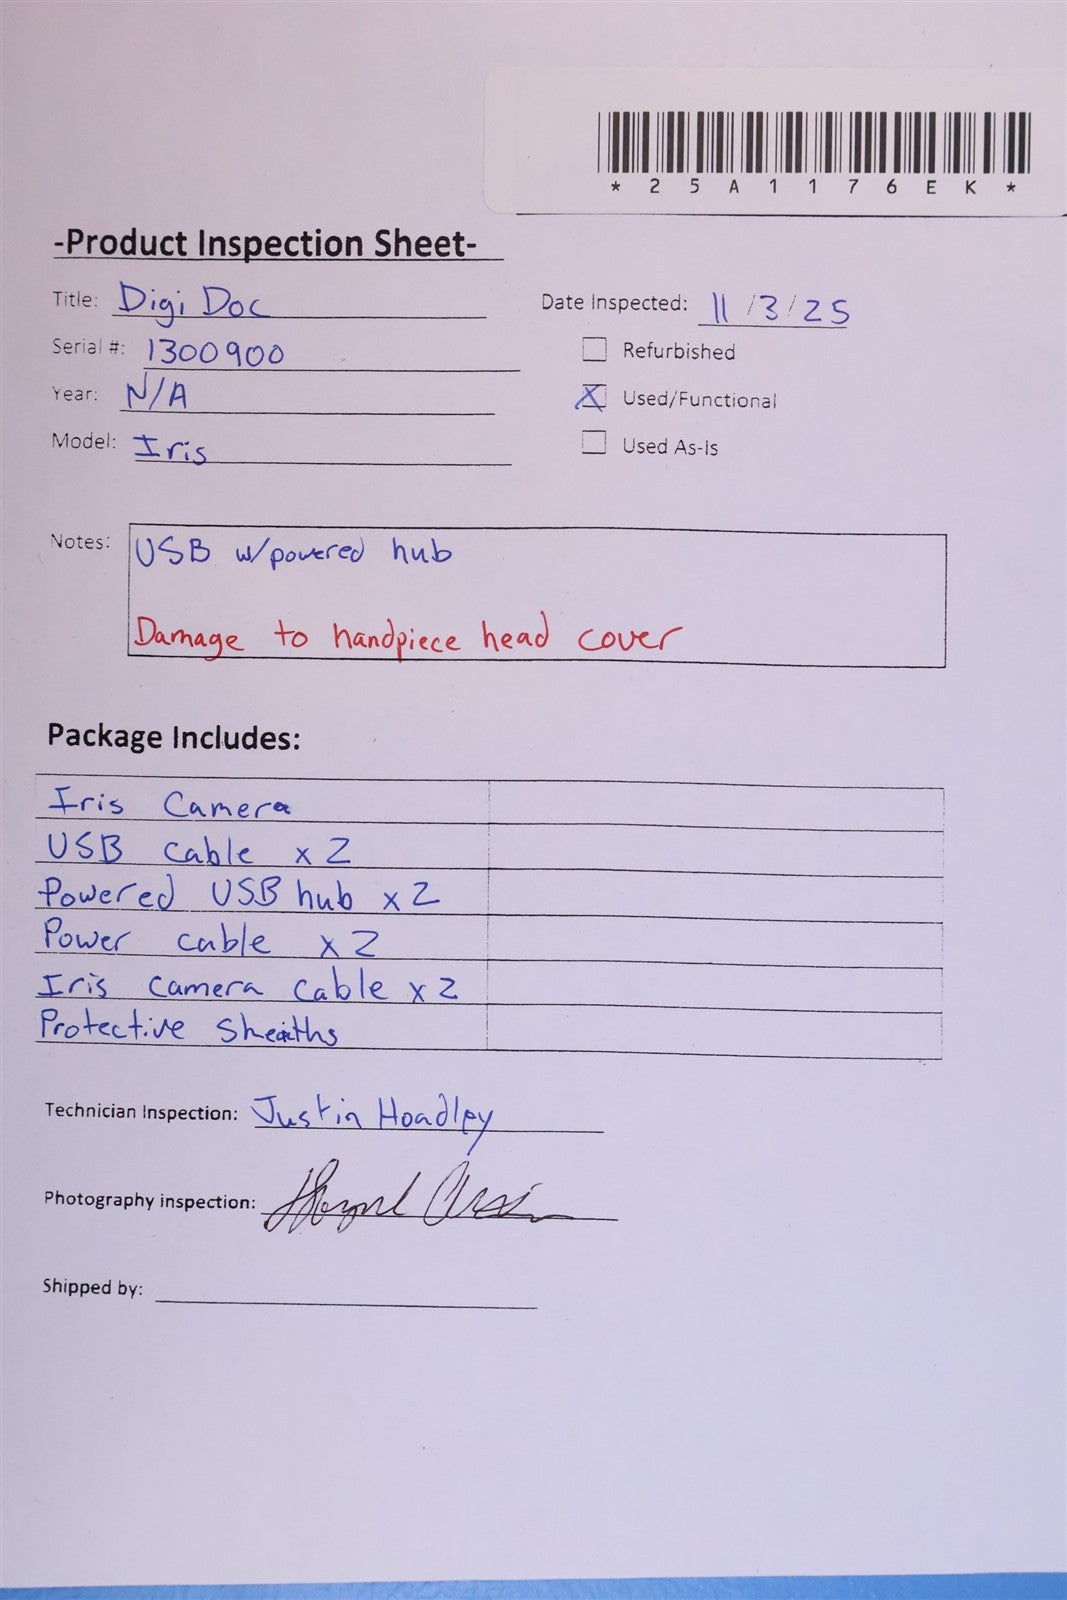 *25A1176EK*
-Product Inspection Sheet-
Title: Digi Doc
Date Inspected: 11/3/25
Serial #: 1300900
Refurbished
Year: N/A
X Used/Functional
Model: Iris
Used As-Is
Notes: USB w/powered hub
Damage to handpiece head cover
Package Includes:
Iris Camera
USB cable x 2
Powered USB hub x 2
Power cable x 2
Iris camera cable x 2
Protective Sheaths
Technician Inspection: Justin Hoadley
Photography inspection:
Shipped by: